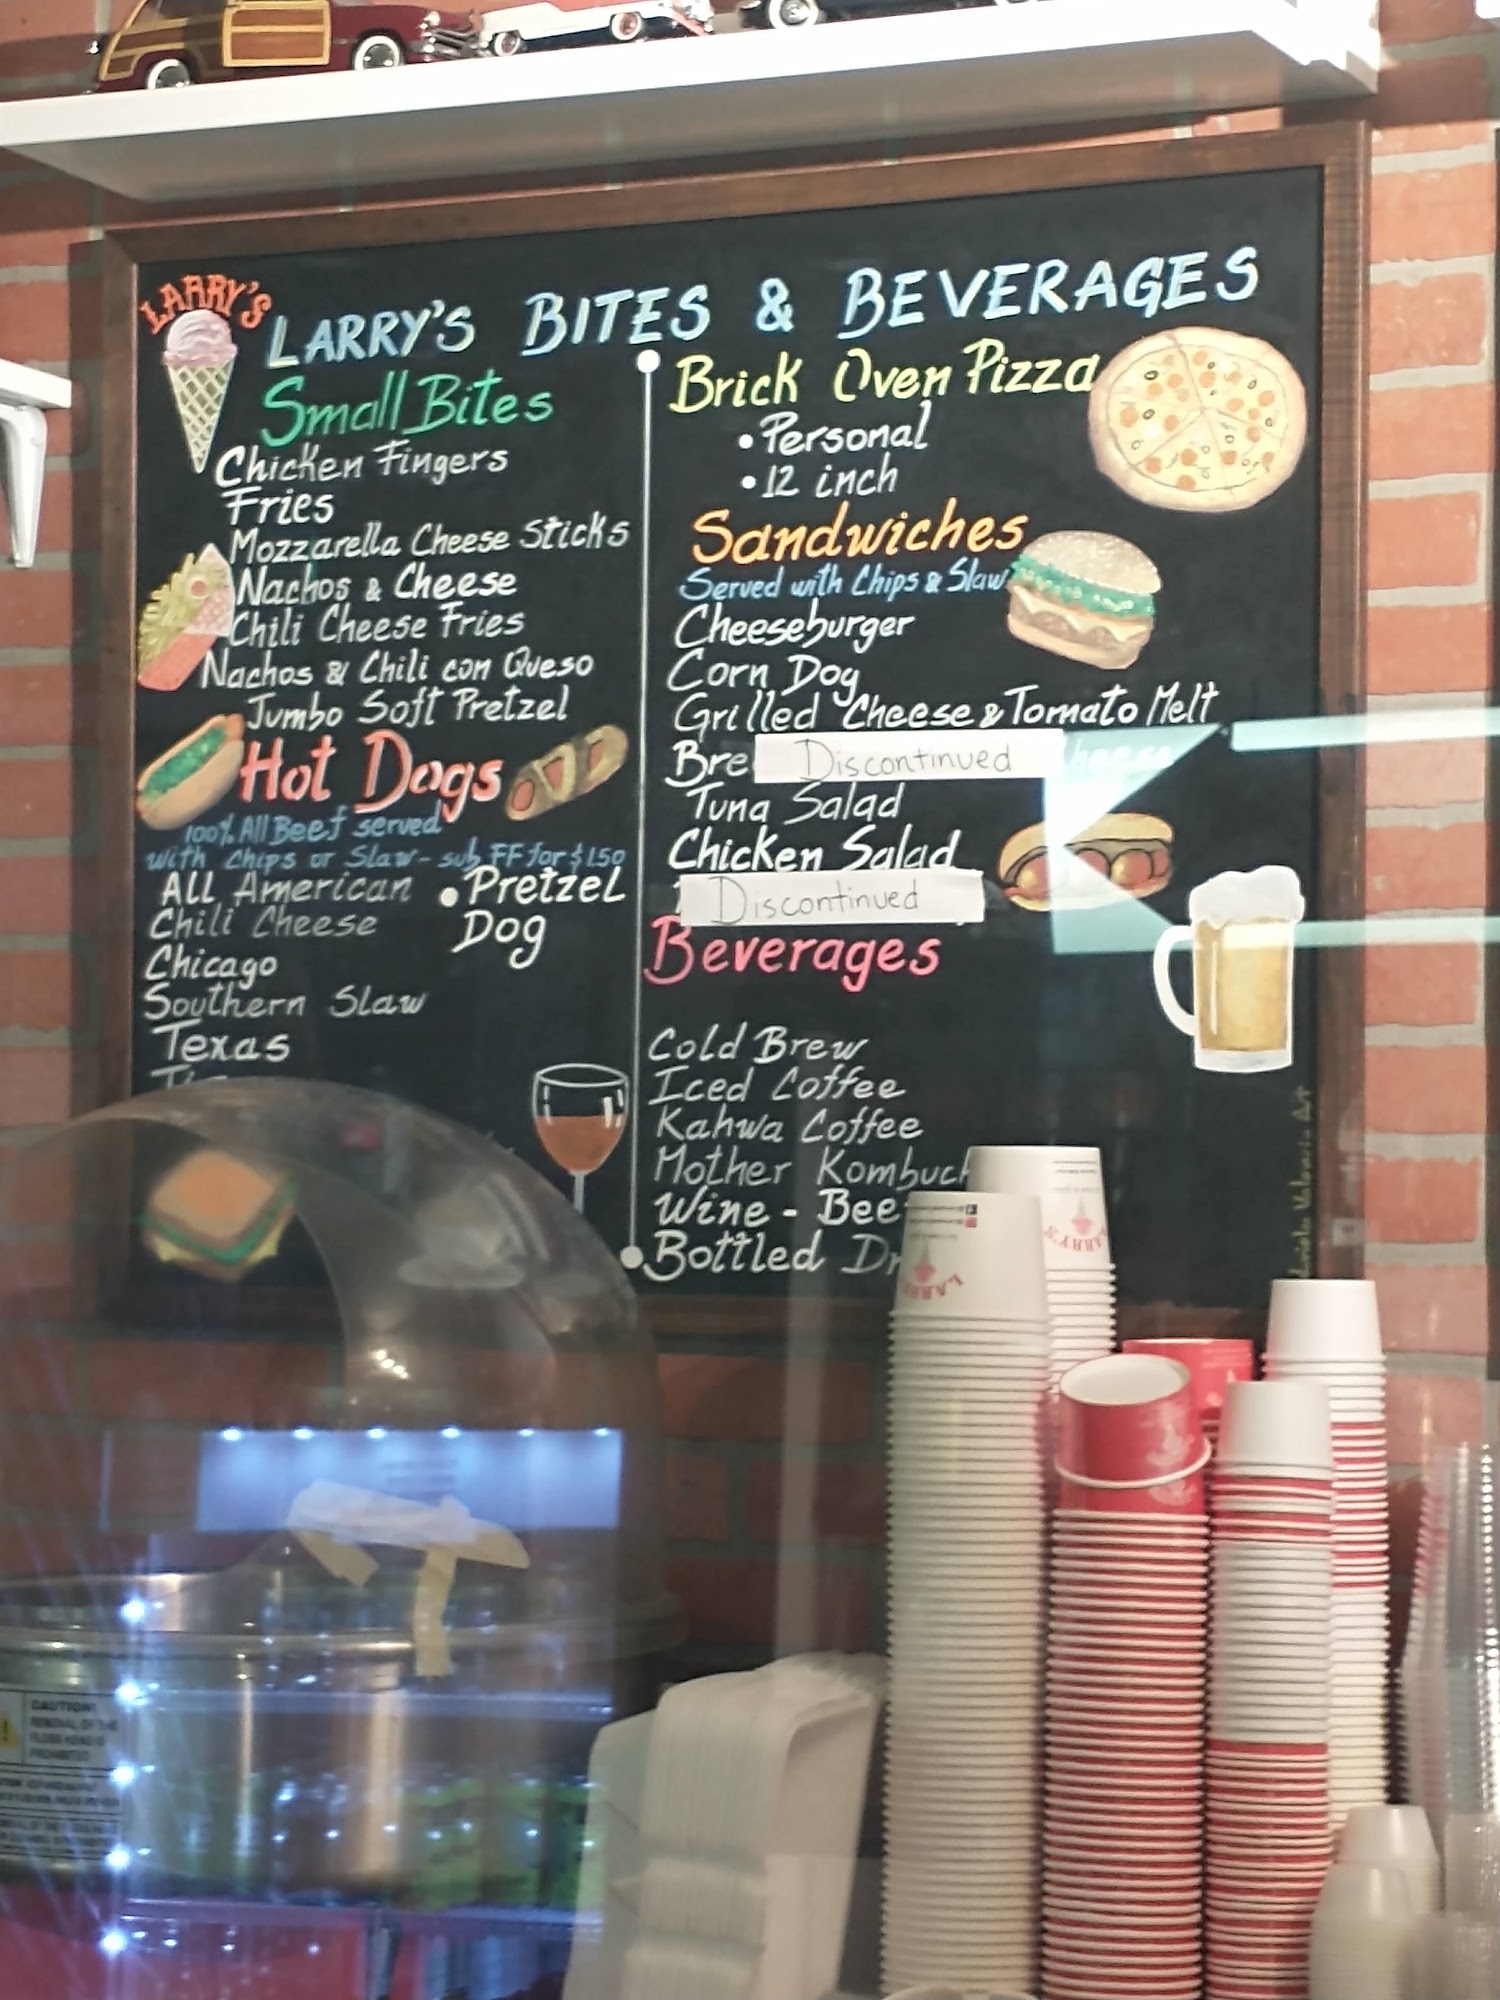 LARRY'S
LARRY'S BITES & BEVERAGES
Small Bites
Chicken Fingers
Fries
Mozzarella Cheese Sticks
Nachos & Cheese
Chili Cheese Fries
Nachos & Chili con Queso
Jumbo Soft Pretzel
Hot Dogs
100% All Beef served
with Chips or Slaw - sub FF for $1.50
ALL American
Chili Cheese
Chicago
Southern Slaw
Texas
• Pretzel
Dog
Brick Oven Pizza
• Personal
• 12 inch
Sandwiches
Served with Chips & Slaw
Cheeseburger
Corn Dog
Grilled Cheese & Tomato Melt
Bre Discontinued heese
Tuna Salad
Chicken Salad
Discontinued
Beverages
Cold Brew
Iced Coffee
Kahwa Coffee
Mother Kombuch
Wine - Bee
Bottled Dr
LARRY'S
LARRY'S
CAUTION!
REMOVAL OF THE
FLOSS HEAD IS
PROHIBITED